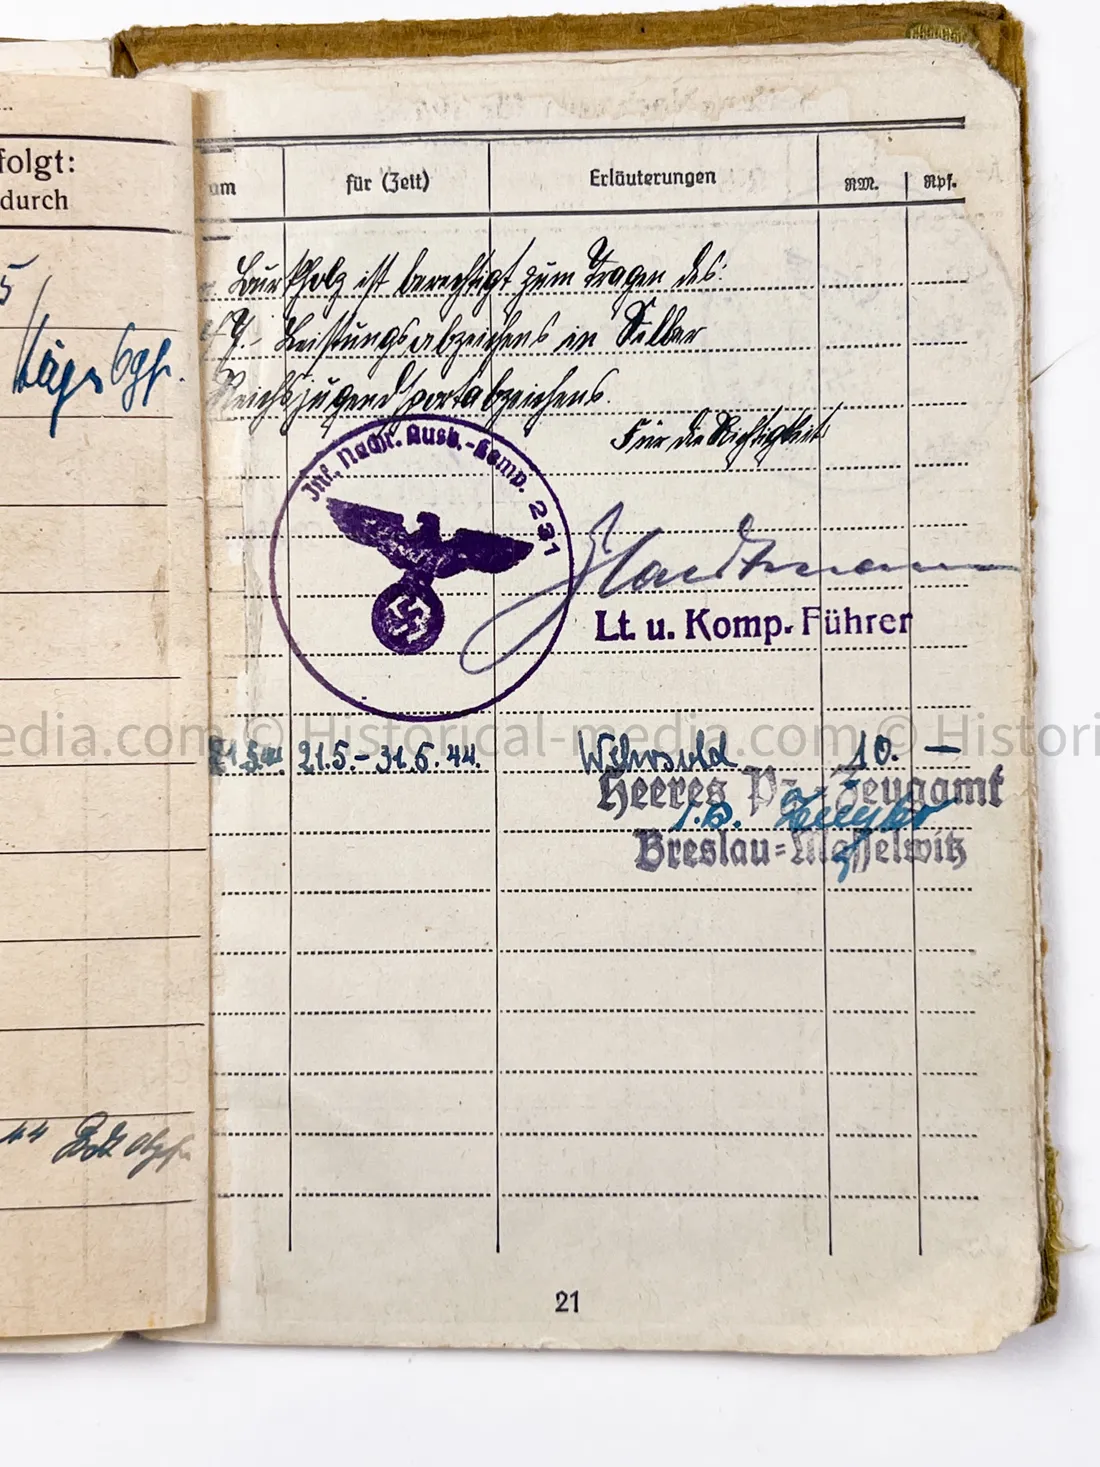 folgt:
durch
um
für (Zeit)
Erläuterungen
RM.
Rpf.
Burkholz ist berechtigt zum Tragen des:
H.J.- Leistungsabzeichens in Silber
Reichsjugendsportabzeichens.
Für die Richtigkeit
Inf. Nachr. Ausb.-Komp. 231
Lt. u. Komp.-Führer
21.5.- 31.5.44. Wehrsold 10. —
Heeres Pz.-Zeugamt
Breslau-Masselwitz
44
21
edia.com © Historical-media.com © Histori